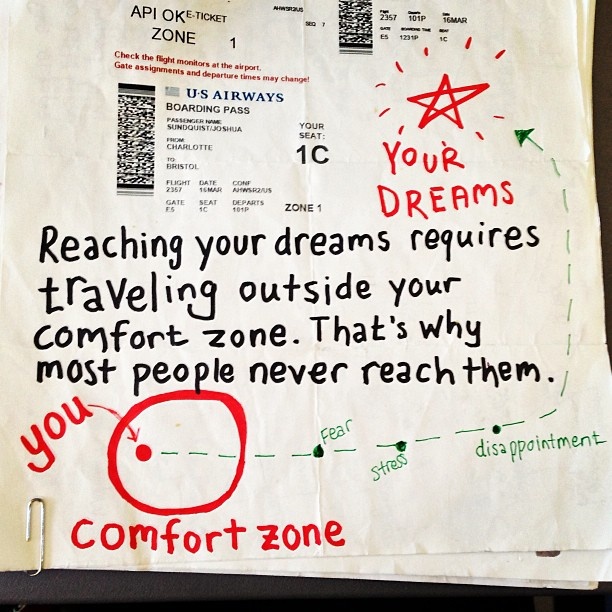 API OK E-TICKET
AHWSR2/US
SEQ 7
ZONE 1
Flight Departs Date
2357 101P 16MAR
GATE BOARDING TIME SEAT
E5 1231P 1C
Check the flight monitors at the airport.
Gate assignments and departure times may change!
U·S AIRWAYS
BOARDING PASS
PASSENGER NAME
SUNDQUIST/JOSHUA
FROM:
CHARLOTTE
TO:
BRISTOL
YOUR
SEAT:
1C
FLIGHT DATE CONF
2357 16MAR AHWSR2/US
GATE SEAT DEPARTS
E5 1C 101P
ZONE 1
YOUR
DREAMS
Reaching your dreams requires
traveling outside your
comfort zone. That's why
most people never reach them.
you
Fear
stress
disappointment
comfort zone